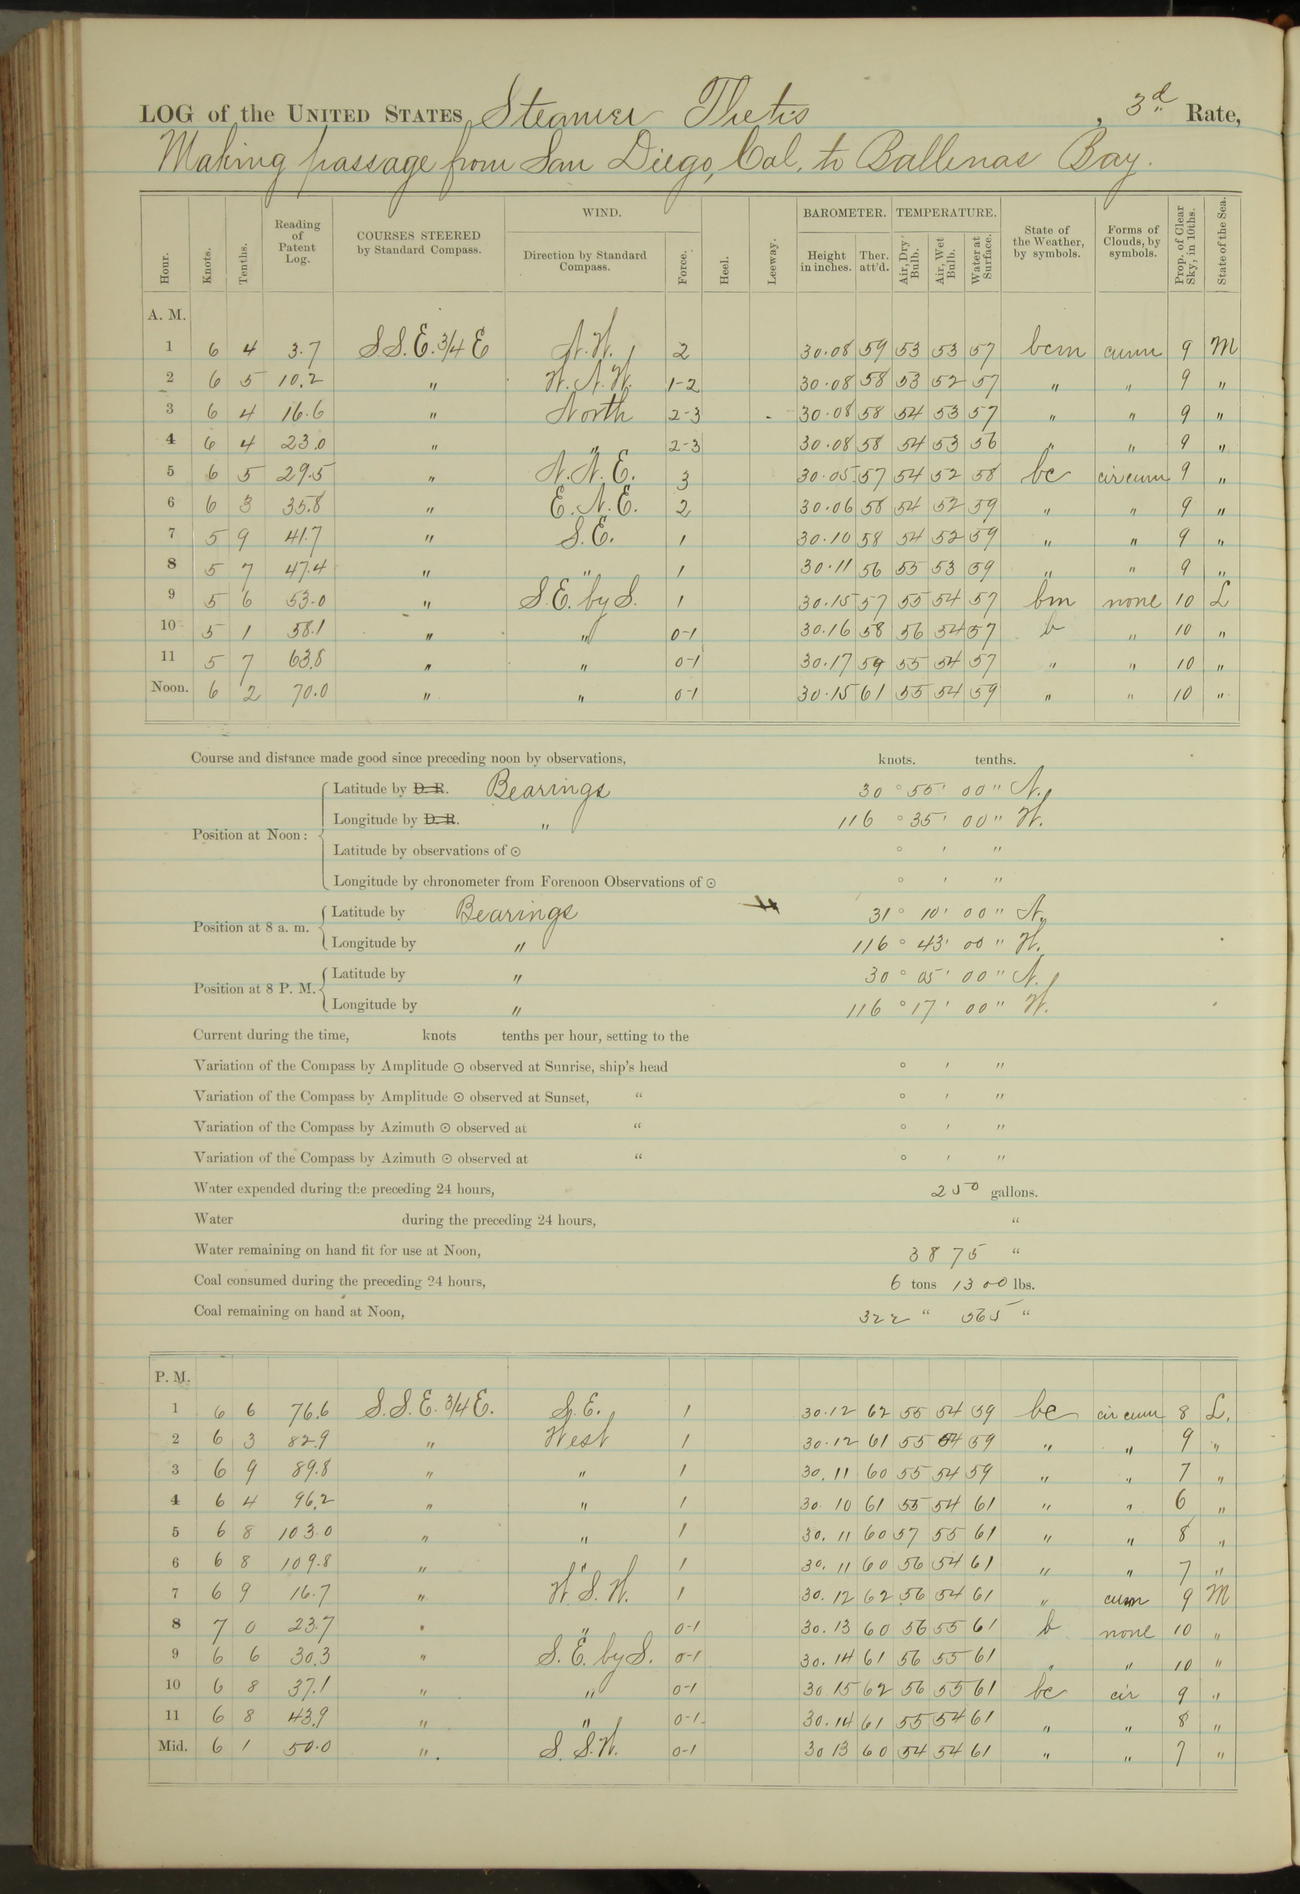 LOG of the UNITED STATES Steamer Thetis, 3d Rate,
Making passage from San Diego, Cal. to Ballenas Bay.
Hour. Knots. Tenths. Reading of Patent Log. COURSES STEERED by Standard Compass. WIND. Direction by Standard Compass. Force. Heel. Leeway. BAROMETER. Height in inches. Ther. att'd. TEMPERATURE. Air, Dry Bulb. Air, Wet Bulb. Water at Surface. State of the Weather, by symbols. Forms of Clouds, by symbols. Prop. of Clear Sky, in 10ths. State of the Sea.
A. M.
1 6 4 3.7 S.S.E. 3/4 E N.W. 2 30.08 59 53 53 57 bcm cum 9 M
2 6 5 10.2 " W.N.W. 1-2 30.08 58 53 52 57 " " 9 "
3 6 4 16.6 " North 2-3 30.08 58 54 53 57 " " 9 "
4 6 4 23.0 " " 2-3 30.08 58 54 53 56 " " 9 "
5 6 5 29.5 " N.N.E. 3 30.05 57 54 52 58 bc cir cum 9 "
6 6 3 35.8 " E.N.E. 2 30.06 58 54 52 59 " " 9 "
7 5 9 41.7 " S.E. 1 30.10 58 54 52 59 " " 9 "
8 5 7 47.4 " " 1 30.11 56 55 53 59 " " 9 "
9 5 6 53.0 " S.E. by S. 1 30.15 57 55 54 57 bm none 10 L
10 5 1 58.1 " " 0-1 30.16 58 56 54 57 b " 10 "
11 5 7 63.8 " " 0-1 30.17 59 55 54 57 " " 10 "
Noon. 6 2 70.0 " " 0-1 30.15 61 55 54 59 " " 10 "
Course and distance made good since preceding noon by observations, knots. tenths.
Position at Noon:
Latitude by D. R. Bearings 30 ° 55 ' 00 " N.
Longitude by D. R. " 116 ° 35 ' 00 " W.
Latitude by observations of ☉ ° ' "
Longitude by chronometer from Forenoon Observations of ☉ ° ' "
Position at 8 a. m.
Latitude by Bearings 31 ° 10 ' 00 " N.
Longitude by " 116 ° 43 ' 00 " W.
Position at 8 P. M.
Latitude by " 30 ° 05 ' 00 " N.
Longitude by " 116 ° 17 ' 00 " W.
Current during the time, knots tenths per hour, setting to the
Variation of the Compass by Amplitude ☉ observed at Sunrise, ship's head ° ' "
Variation of the Compass by Amplitude ☉ observed at Sunset, " ° ' "
Variation of the Compass by Azimuth ☉ observed at " ° ' "
Variation of the Compass by Azimuth ☉ observed at " ° ' "
Water expended during the preceding 24 hours, 250 gallons.
Water during the preceding 24 hours, "
Water remaining on hand fit for use at Noon, 3875 "
Coal consumed during the preceding 24 hours, 6 tons 1300 lbs.
Coal remaining on hand at Noon, 322 " 565 "
P. M.
1 6 6 76.6 S.S.E. 3/4 E. S.E. 1 30.12 62 55 54 59 bc cir cum 8 L.
2 6 3 82.9 " West 1 30.12 61 55 54 59 " " 9 "
3 6 9 89.8 " " 1 30.11 60 55 54 59 " " 7 "
4 6 4 96.2 " " 1 30 10 61 55 54 61 " " 6 "
5 6 8 103.0 " " 1 30.11 60 57 55 61 " " 8 "
6 6 8 109.8 " " 1 30.11 60 56 54 61 " " 7 "
7 6 9 16.7 " W.S.W. 1 30.12 62 56 54 61 " cum 9 M
8 7 0 23.7 " " 0-1 30.13 60 56 55 61 b none 10 "
9 6 6 30.3 " S.E. by S. 0-1 30.14 61 56 55 61 " " 10 "
10 6 8 37.1 " " 0-1 30 15 62 56 55 61 bc cir 9 "
11 6 8 43.9 " " 0-1 30.14 61 55 54 61 " " 8 "
Mid. 6 1 50.0 " S.S.W. 0-1 30 13 60 54 54 61 " " 7 "